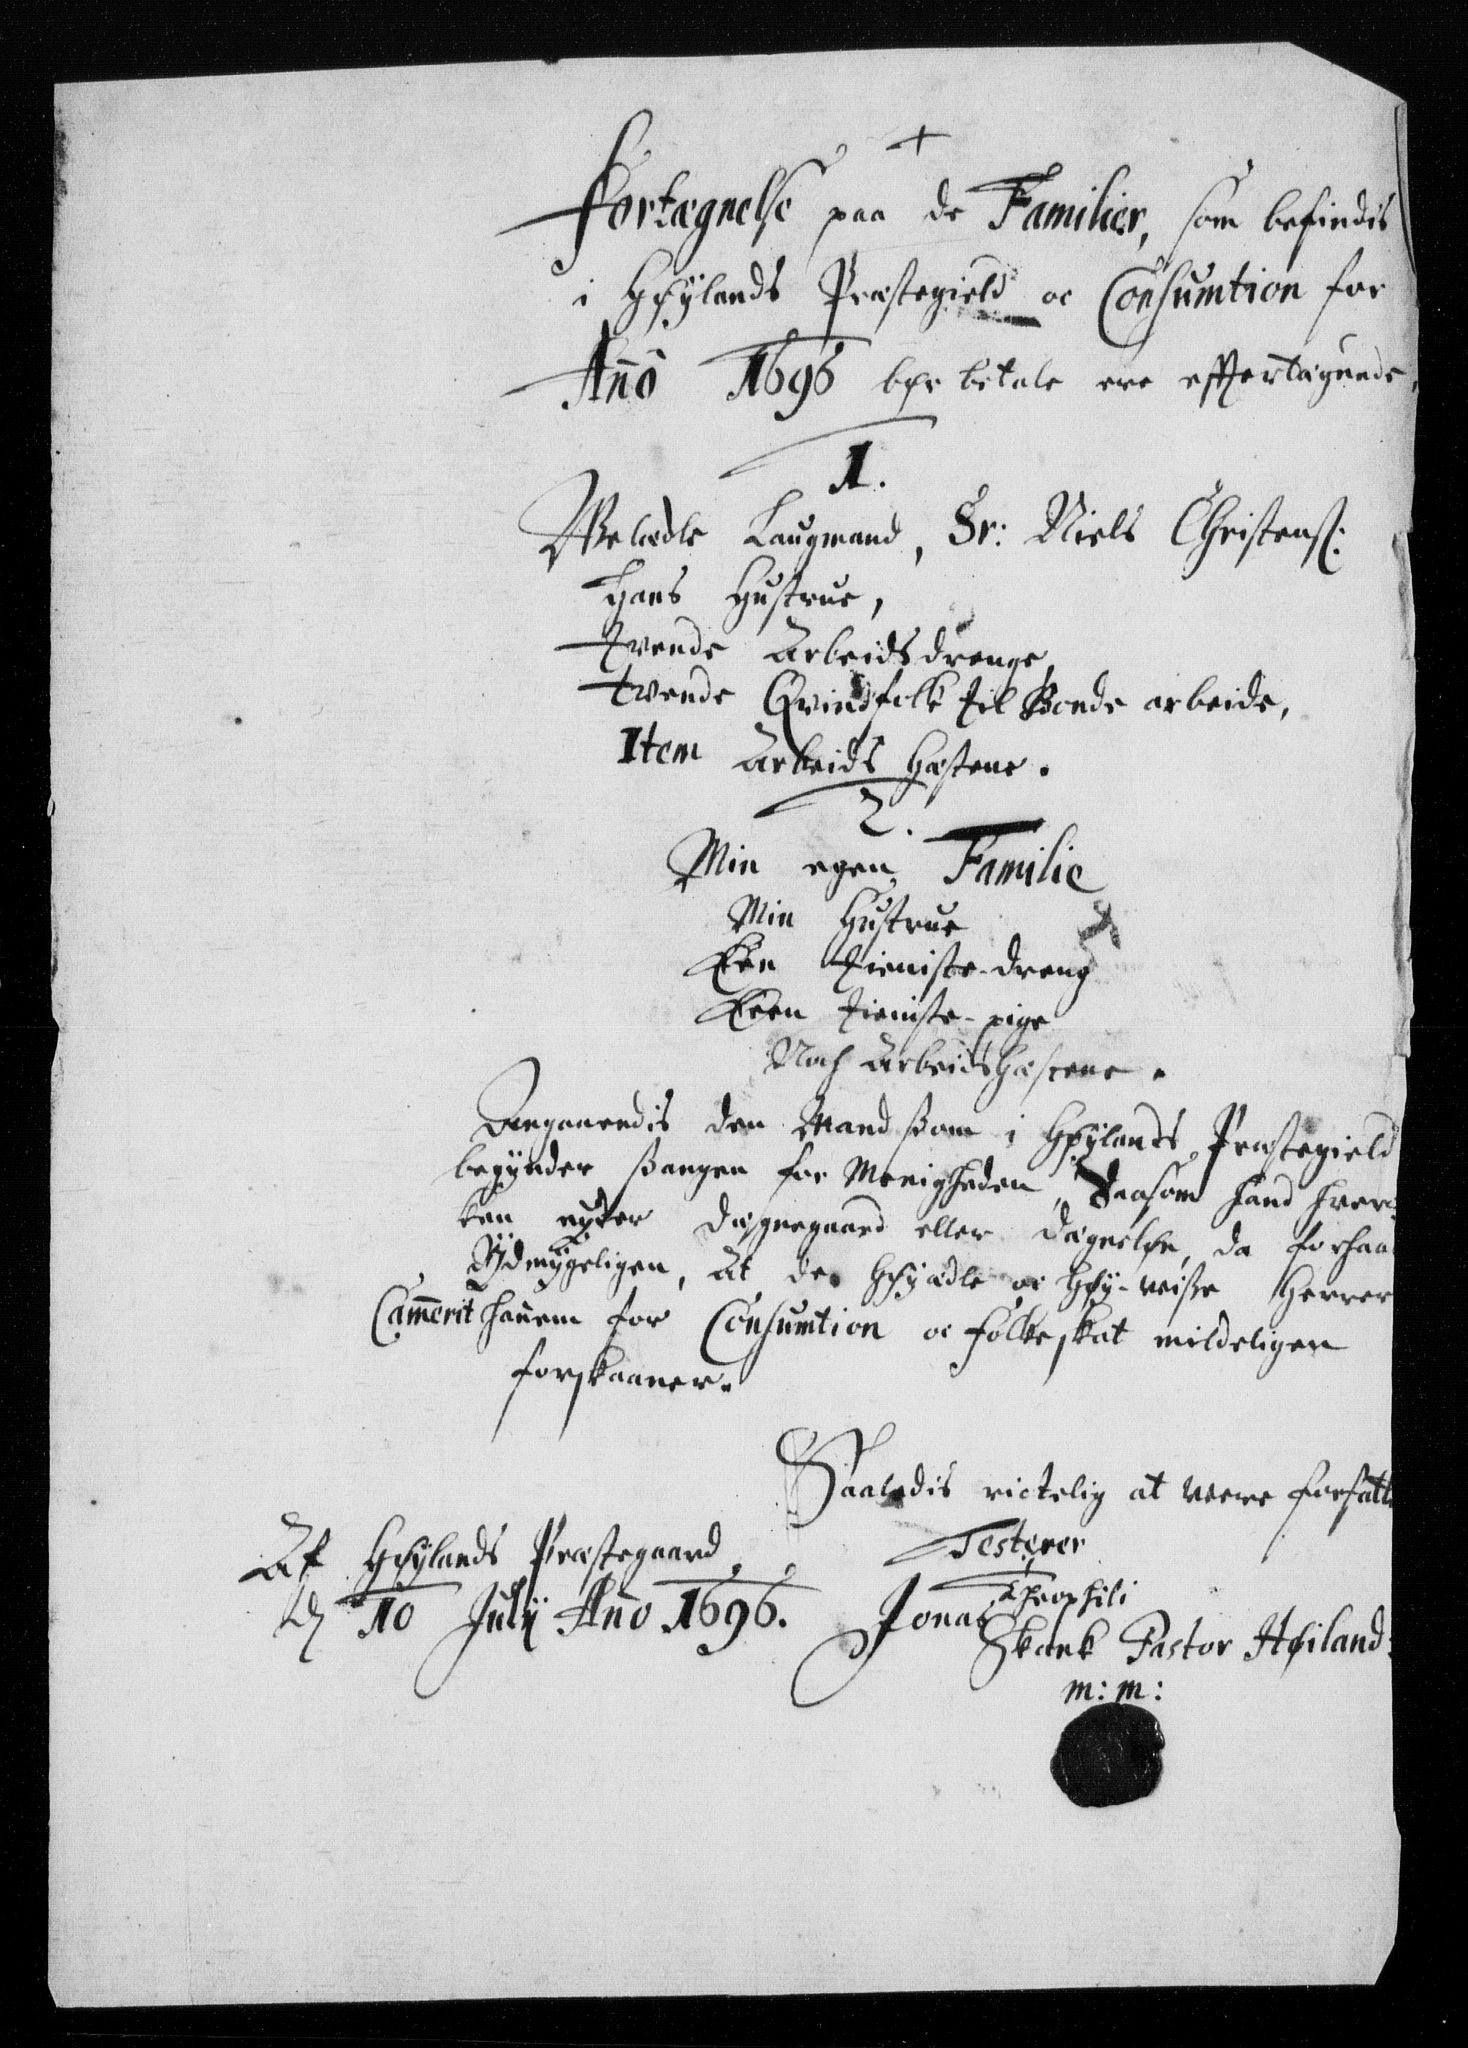 +
Fortegnelse paa de Familier, som befindis
i Høÿlands Præstegield oc Consumtion for
Año 1696 bør betale ere effterskrefne
1.
Welædle Laugmand, Sr: Niels Christens:
Hans Hustrue,
Tvende Arbeids drenge,
Tvende Qvindfolk til Bonde arbeide,
Item Arbeids Hæstene.
2.
Min egen Familie
Min Hustrue
Een tieniste-dreng
Een tieniste-pige
Noch Arbeids hæstene.
Angaaendis den Mand ßom i Høÿlands Præstegield
begÿnder ßangen for Menigheden, Saasom hand hver-
ken nÿder Degnegaard eller Degneløn, da forhaa
Ydmÿgeligen, At de Høÿædle oc Høÿ-veiße Herrer
Camerit hañem for Consumtion oc folkeskat mildeligen
forskaaner.
Saaledis rictelig at were forfatt
Testerer
Af Høÿlands Præstegaard
d 10 Julÿ Año 1696.
Jonas Theophili
Skank Pastor Høiland:
m: m: